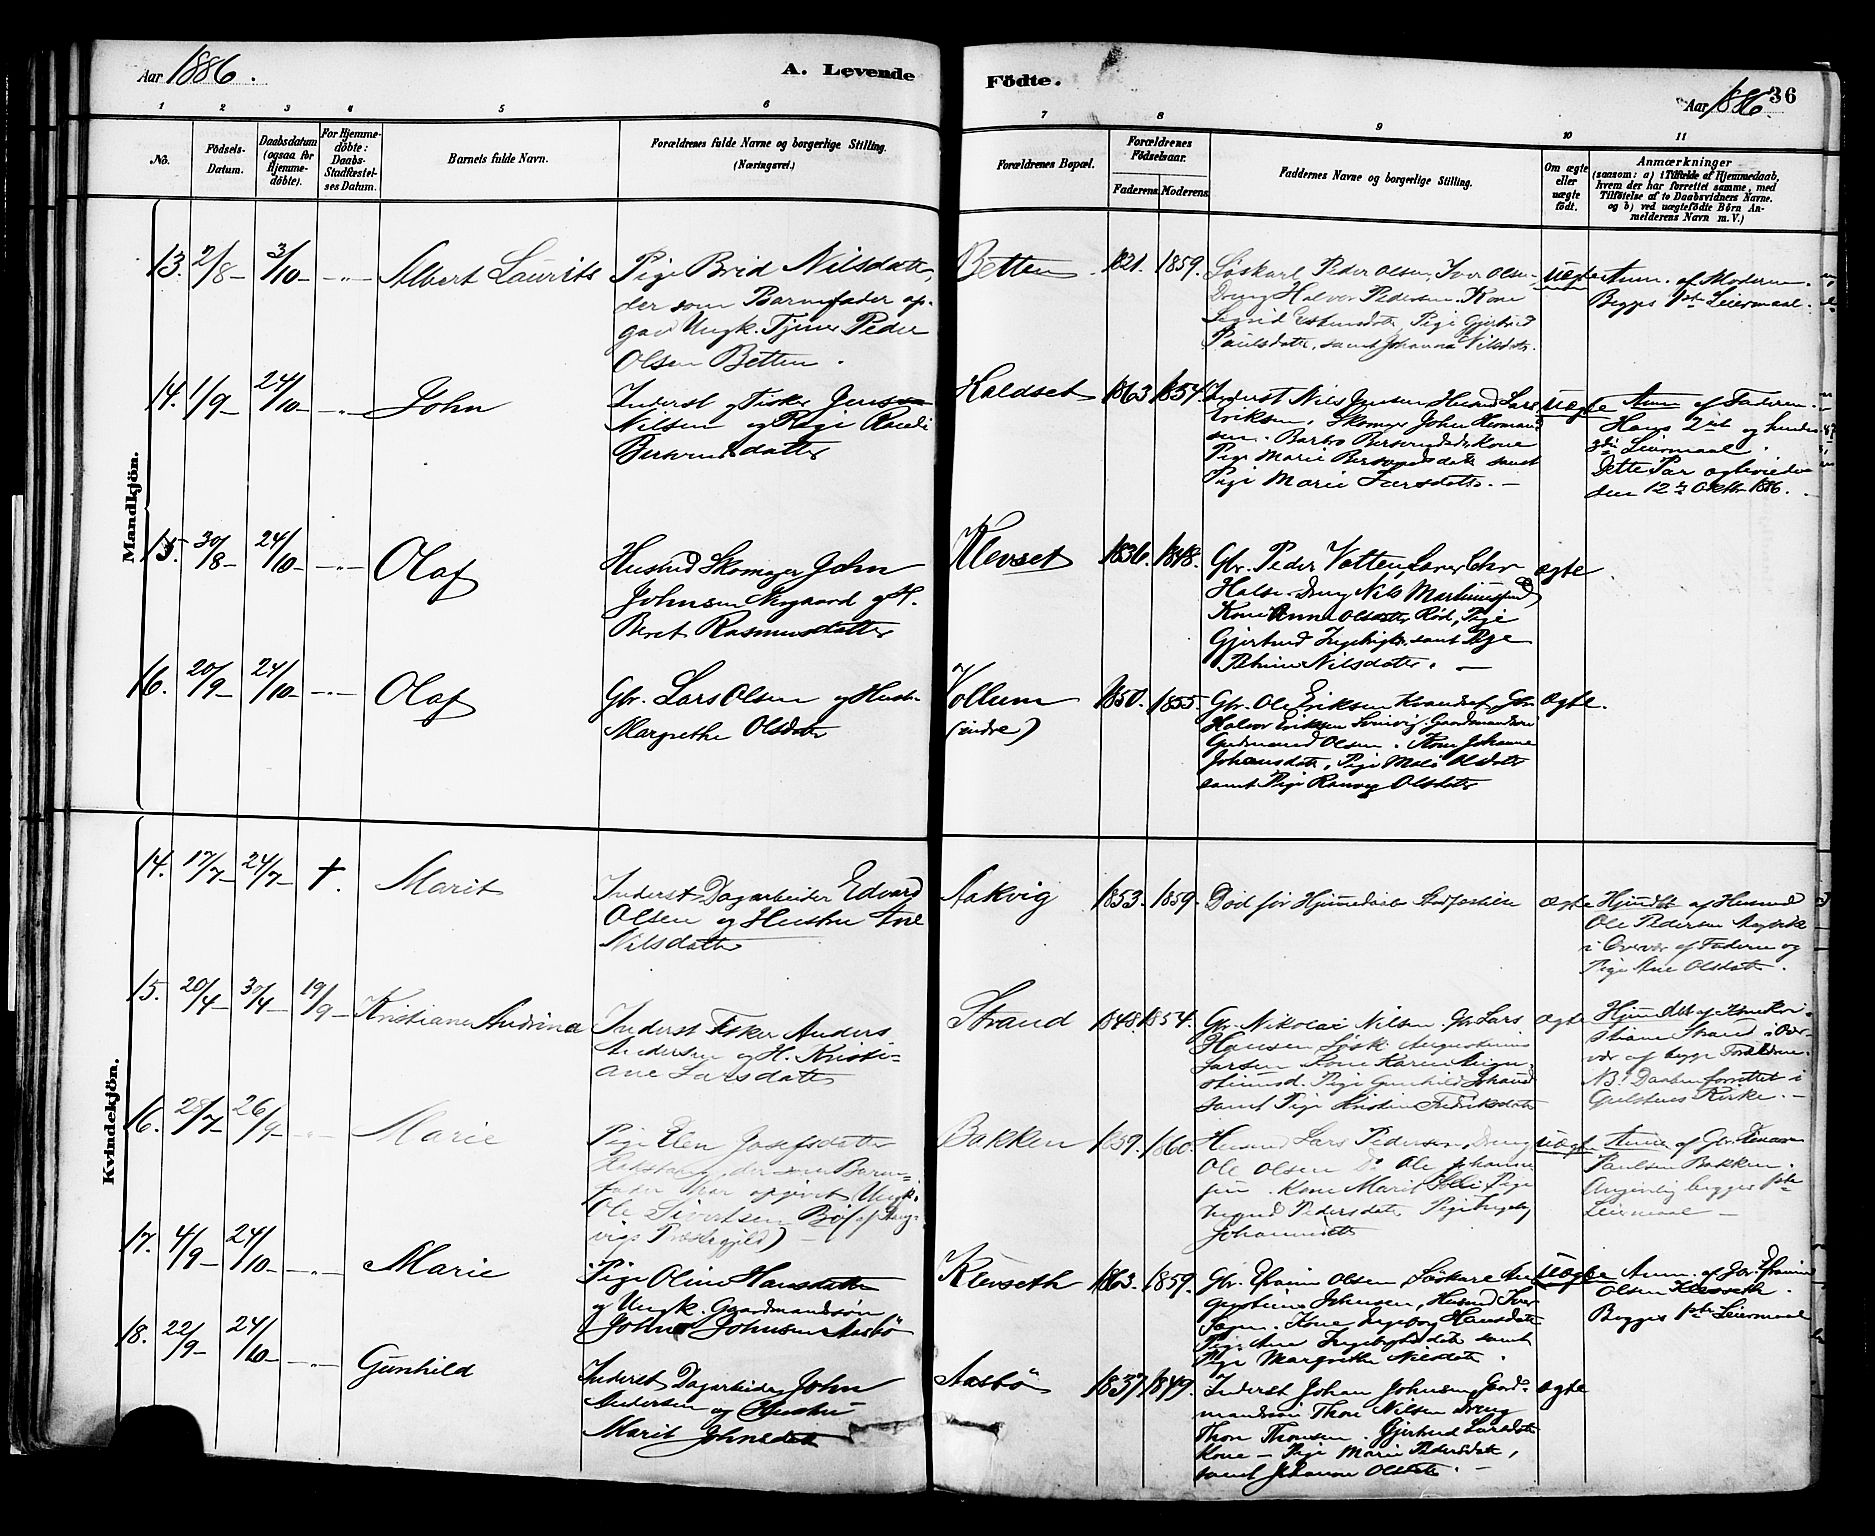 Aar 1886.
A. Levende
Födte.
Aar 1886.
36
1 2 3 4 5 6
7 8 9 10 11
No.
Födsels-
Datum.
Daabsdatum
(ogsaa for
Hjemme-
döbte).
For Hjemme-
döbte:
Daabs-
Stadfæstel-
ses Datum.
Barnets fulde Navn.
Forældrenes fulde Navne og borgerlige Stilling.
(Næringsvei.)
Forældrenes Bopæl.
Forældrenes
Födselsaar.
Faderens. Moderens.
Faddernes Navne og borgerlige Stilling.
Om ægte
eller
uægte
födt.
Anmærkninger
(saasom: a) i Tilfælde af Hjemmedaab,
hvem der har forrettet samme, med
Tilföielse af to Daabsvidners Navne.
og b) ved uægtefödte Börn An-
melderens Navn m. V.)
Mandkjön.
13. 2/8 3/10 Albert Laurits
Pige Brid Nilsdatter,
der som Barnefader op-
gav Ungk. Tjener Peder
Olsen Betten.
Betten 1821. 1859.
Söskarl Peder Olsen, Iver Olsen
Dreng Halvor Pedersen. Kone
Pige Gjertrud
Paulsdatter, samt Johanna Nilsdatter
uægte
Anm. af Moderen.
Begges 1ste Leiermaal.
14. 1/9 24/10 John
Inderst og Fisker Jens
Nilsen og Pige Randi
Bersvendsdatter
Kaldset 1863 1857
Inderst Nils Jensen Husmd Lars
Eriksen, Skomager John Herman
sen. Barbro Bersvendsdtr Kone
Pige Marie Bersvendsdatter samt
Pige Marie Larsdatter. —
uægte
Anm. af Faderen.
Hans 2det og hendes
3die Leiermaal.
Dette Par egteviedes
den 12te Oktbr 1886.
15. 30/8 24/10 Olaf
Husmd Skomager John
Johnsen Nergaard og H.
Beret Rasmusdatter
Klevset 1836. 1848.
Gbr. Peder Vatten, Lærer Chr
Halse Dreng Nils Martinussen
Kone Anne Olsdatter Röd, Pige
Gjertrud Ingebrigtsdtr. samt Pige
Nilsdatter. —
ægte
16. 20/9 24/10 Olaf
Gbr. Lars Olsen og Hustr.
Margrethe Olsdatter
Vollum
(indre)
1850. 1855.
Gbr. Ole Eriksen Gbr
Halvor Eriksen Gaardmandssön
Gudmund Olsen. Kone Johanna
Johansdatter, Pige Olsdatter
samt Pige Ranveg Olsdatter
ægte.
Kvindekjön.
14. 17/7 24/7 +. Marit
Inderst Dagarbeider Edvard
Olsen og Hustru Ane
Nilsdatter
Aakvig 1853. 1859.
Död för Hjemmedaabs Stadfæstelse
ægte
Hjemdöbt af Husmd
Ole Pedersen
i Overvær af Faderen og
Pige Ane Olsdatter.
15. 20/4 30/4 19/9 Kristiane Andrina
Inderst Fisker Anders
Andersen og H. Kristi-
ane Larsdatter
Strand 1848. 1854.
Gbr. Nikolai Nilsen, Gbr Lars
Hansen, Augustinus
Larsen Kone Karen Augu-
stinusd. Pige Gunhild
samt Pige Kristine Fredriksdatter
ægte
Hjemdöbt af
Strand i Over-
vær af begge Forældrene.
NB! Daaben forrettet i
Kirke. —
16. 28/7 26/9 Marie
Pige Elen Josefsdatter
der som Barne-
fader har opgivet Ungk.
Ole Sivertsen
vigs Præstegjeld) —
Bakken 1859. 1860.
Husmd Lars Pedersen, Dreng
Ole Olsen Do Ole Johanne-
sen. Kone Marit Pige
Pedersdatter Pige Ingeborg
Johannesdtr
uægte
Anm. af Gbr.
Paulsen Bakken.
Angivelig begges 1ste
Leiermaal —
17. 4/9 24/10 Marie
Pige Oline Hansdatter
og Ungk. Gaardmandssön
John Johnsen Aasbö
Klevseth 1863. 1859.
Gbr. Efraim Olsen, Söskarl Au-
gustinus Johnsen, Husmd Iver
Kone Ingeborg Hansdatter
Pige Ane Ingebrigtsdatter samt
Pige Margrethe Nilsdatter.
uægte
Anm. af Gbr. Efraim
Olsen Klevseth.
Begges 1ste Leiermaal
18. 22/9 24/10 Gunhild
Inderst Dagarbeider John
Andersen og Hustru
Marit Johnsdatter
Aasbö 1837. 1849.
Inderst Johan Johnsen, Gaard-
mandssön Thore Nilsen Dreng
Thore Thoresen. Gjertrud Larsdatter
Kone — Pige Marie Pedersdatter,
samt Johanna Olsdatter. —
ægte